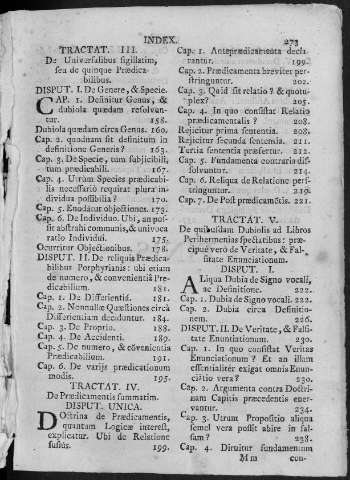 INDEX. 273
TRACTAT. III.
De Universalibus sigillatim,
seu de quinque Prædica-
bilibus.
DISPUT. I. De Genere, & Specie.
CAP. 1. Definitur Genus, &
dubiola quædam resolvun-
tur. 158.
Dubiola quædam circa Genus. 160.
Cap. 2. quodnam sit definitum in
definitione Generis? 163.
Cap. 3. De Specie, tum subjicibili,
tum prædicabili. 167.
Cap. 4. Utrum Species prædicabi-
lis necessariò requirat plura in-
dividua possibilia? 170.
Cap. 5. Enodãtur objectiones. 173.
Cap. 6. De Individuo. Ubi, an pos-
sit abstrahi communis, & univoca
ratio Individui. 175.
Ocurritur Objectionibus. 178.
DISPUT. II. De reliquis Prædica-
bilibus Porphyrianis: ubi etiam
de numero, & convenientiâ Præ-
dicabilium. 181.
Cap. 1. De Differentiâ. 181.
Cap. 2. Nonnullæ Quæstiones circà
Differentiam deciduntur. 184.
Cap. 3. De Proprio. 188.
Cap. 4. De Accidenti. 189.
Cap. 5. De numero, & cõvenientia
Prædicabilium. 191.
Cap. 6. De varijs prædicationum
modis. 195.
TRACTAT. IV.
De Prædicamentis summatim.
DISPUT. UNICA.
Doctrina de Prædicamentis,
quantum Logicæ interest,
explicatur. Ubi de Relatione
fusiùs. 199.
Cap. 1. Anteprædicamenta decla-
rantur. 199.
Cap. 2. Prædicamenta breviter per-
stringuntur. 202.
Cap. 3. Quid sit relatio? & quotu-
plex? 205.
Cap. 4. In quo consistat Relatio
prædicamentalis? 208.
Rejicitur prima sententia. 208.
Rejicitur secunda sentemia. 211.
Tertia sententia præfertur. 212.
Cap. 5. Fundamenta contraria dis-
solvuntur. 214.
Cap. 6. Reliqua de Relatione pers-
tringuntur. 219.
Cap. 7. De Post prædicamẽtis. 221.
TRACTAT. V.
De quibusdam Dubiolis ad Libros
Perihermenias spectatibus: præ-
cipuè verò de Veritate, & Fal-
sitate Enunciationum.
DISPUT. I.
ALiqua Dubia de Signo vocali,
ac Definitione. 222.
Cap. 1. Dubia de Signo vocali. 222.
Cap. 2. Dubia circa Definitio-
nem. 226.
DISPUT. II. De Veritate, & Falsi-
tate Enuntiationum. 230.
Cap. 1. In quo consistat Veritas
Enunciationum? Et an illum
essentialitèr exigat omnis Enun-
ciatio vera? 230.
Cap. 2. Argumenta contra Doctri-
nam Capitis præcedentis ener-
vantur. 234.
Cap. 3. Utrum Propositio aliqua
semel vera possit abire in fal-
sam? 238.
Cap. 4. Diruitur fundamentum
Mm con-